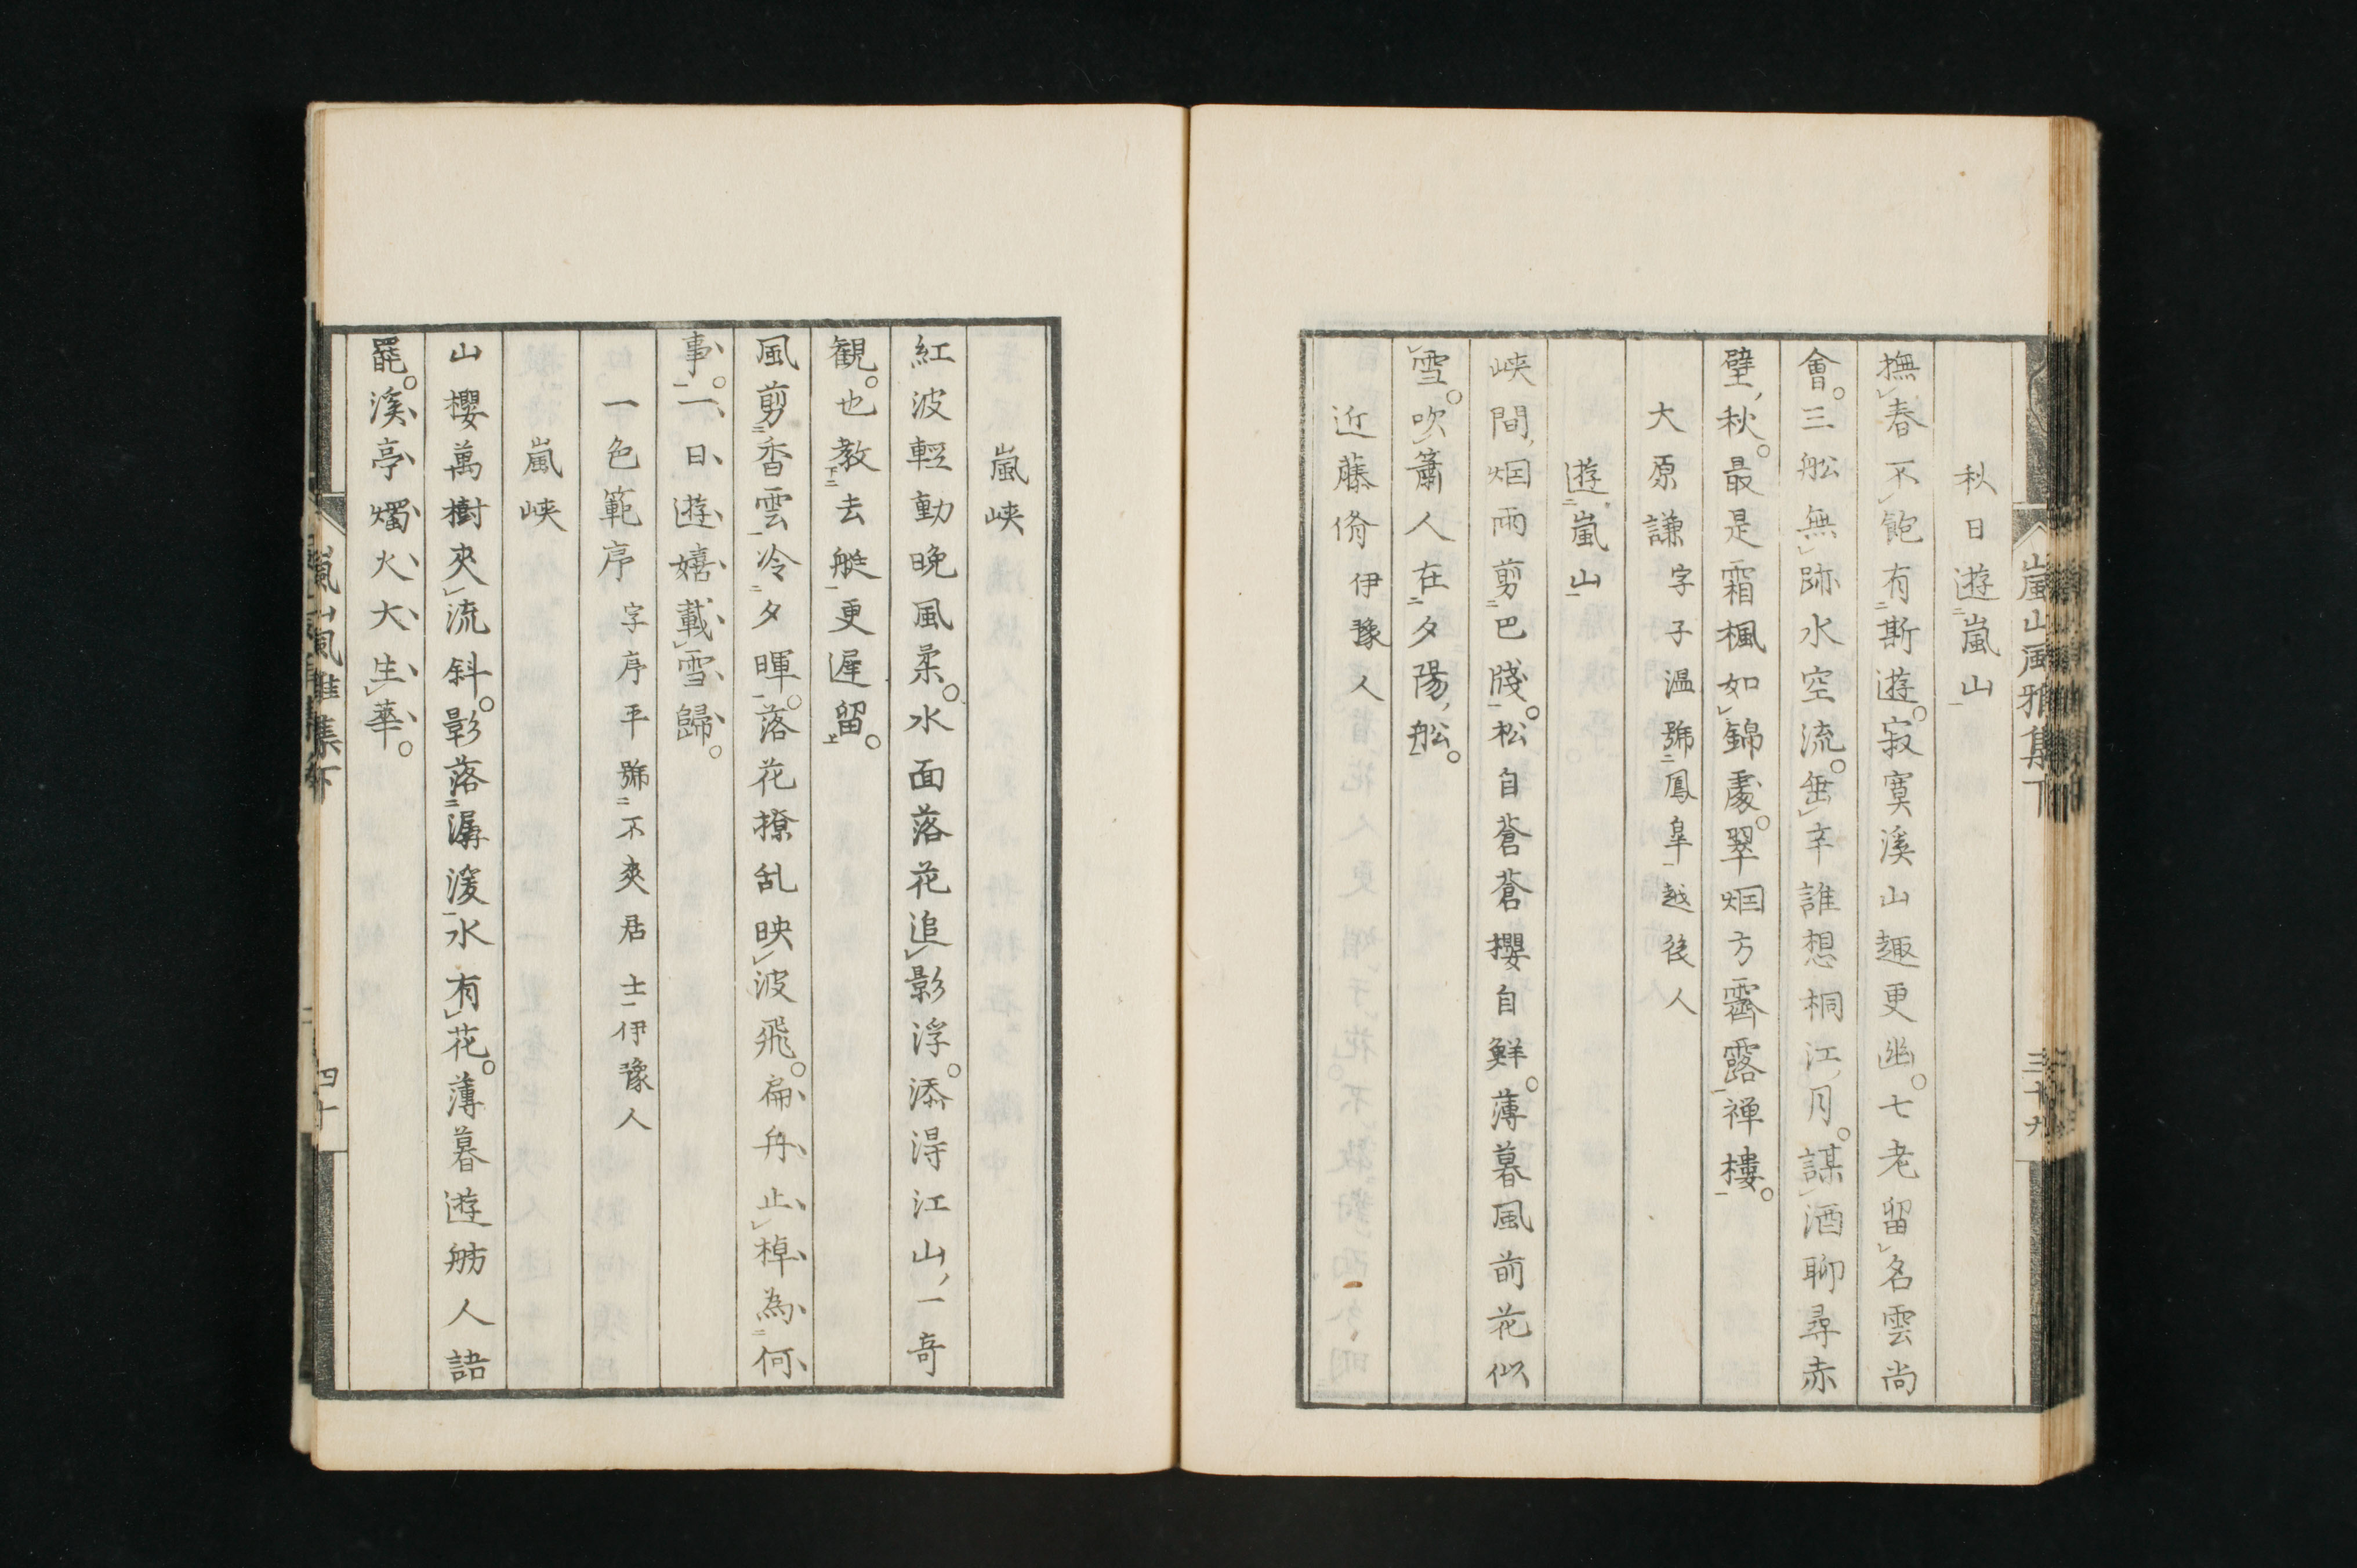 秋日遊嵐山
撫春不飽有斯遊。寂寞溪山趣更幽。七老留名雲尚
會。三舩無跡水空流。垂辛誰想桐江月。謀酒聊尋赤
壁秋。最是霜楓如錦處。翠烟方霽露禅樓。
大原謙字子温號鳳皐越後人
遊嵐山
峡間烟雨剪巴牋。松自蒼蒼櫻自鮮。薄暮風前花似
雪。吹簫人在夕陽舩。
近藤脩伊豫人
嵐山風雅集下
三十九
嵐峡
紅波輕動晩風柔。水面落花追影浮。添得江山一奇
観。也教去艇更遅留。
風剪香雲冷夕暉。落花撩乱映波飛。扁舟止棹為何
事。一日遊嬉載雪歸。
一色範序字序平號不爽居士伊豫人
嵐峡
山櫻萬樹夾流斜。影落潺湲水有花。薄暮遊舫人語
罷。溪亭燭火大生華。
嵐山風雅集下
四十